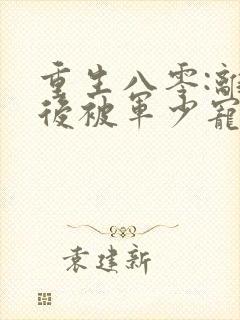 重生八零:離
後被軍少寵
袁建新